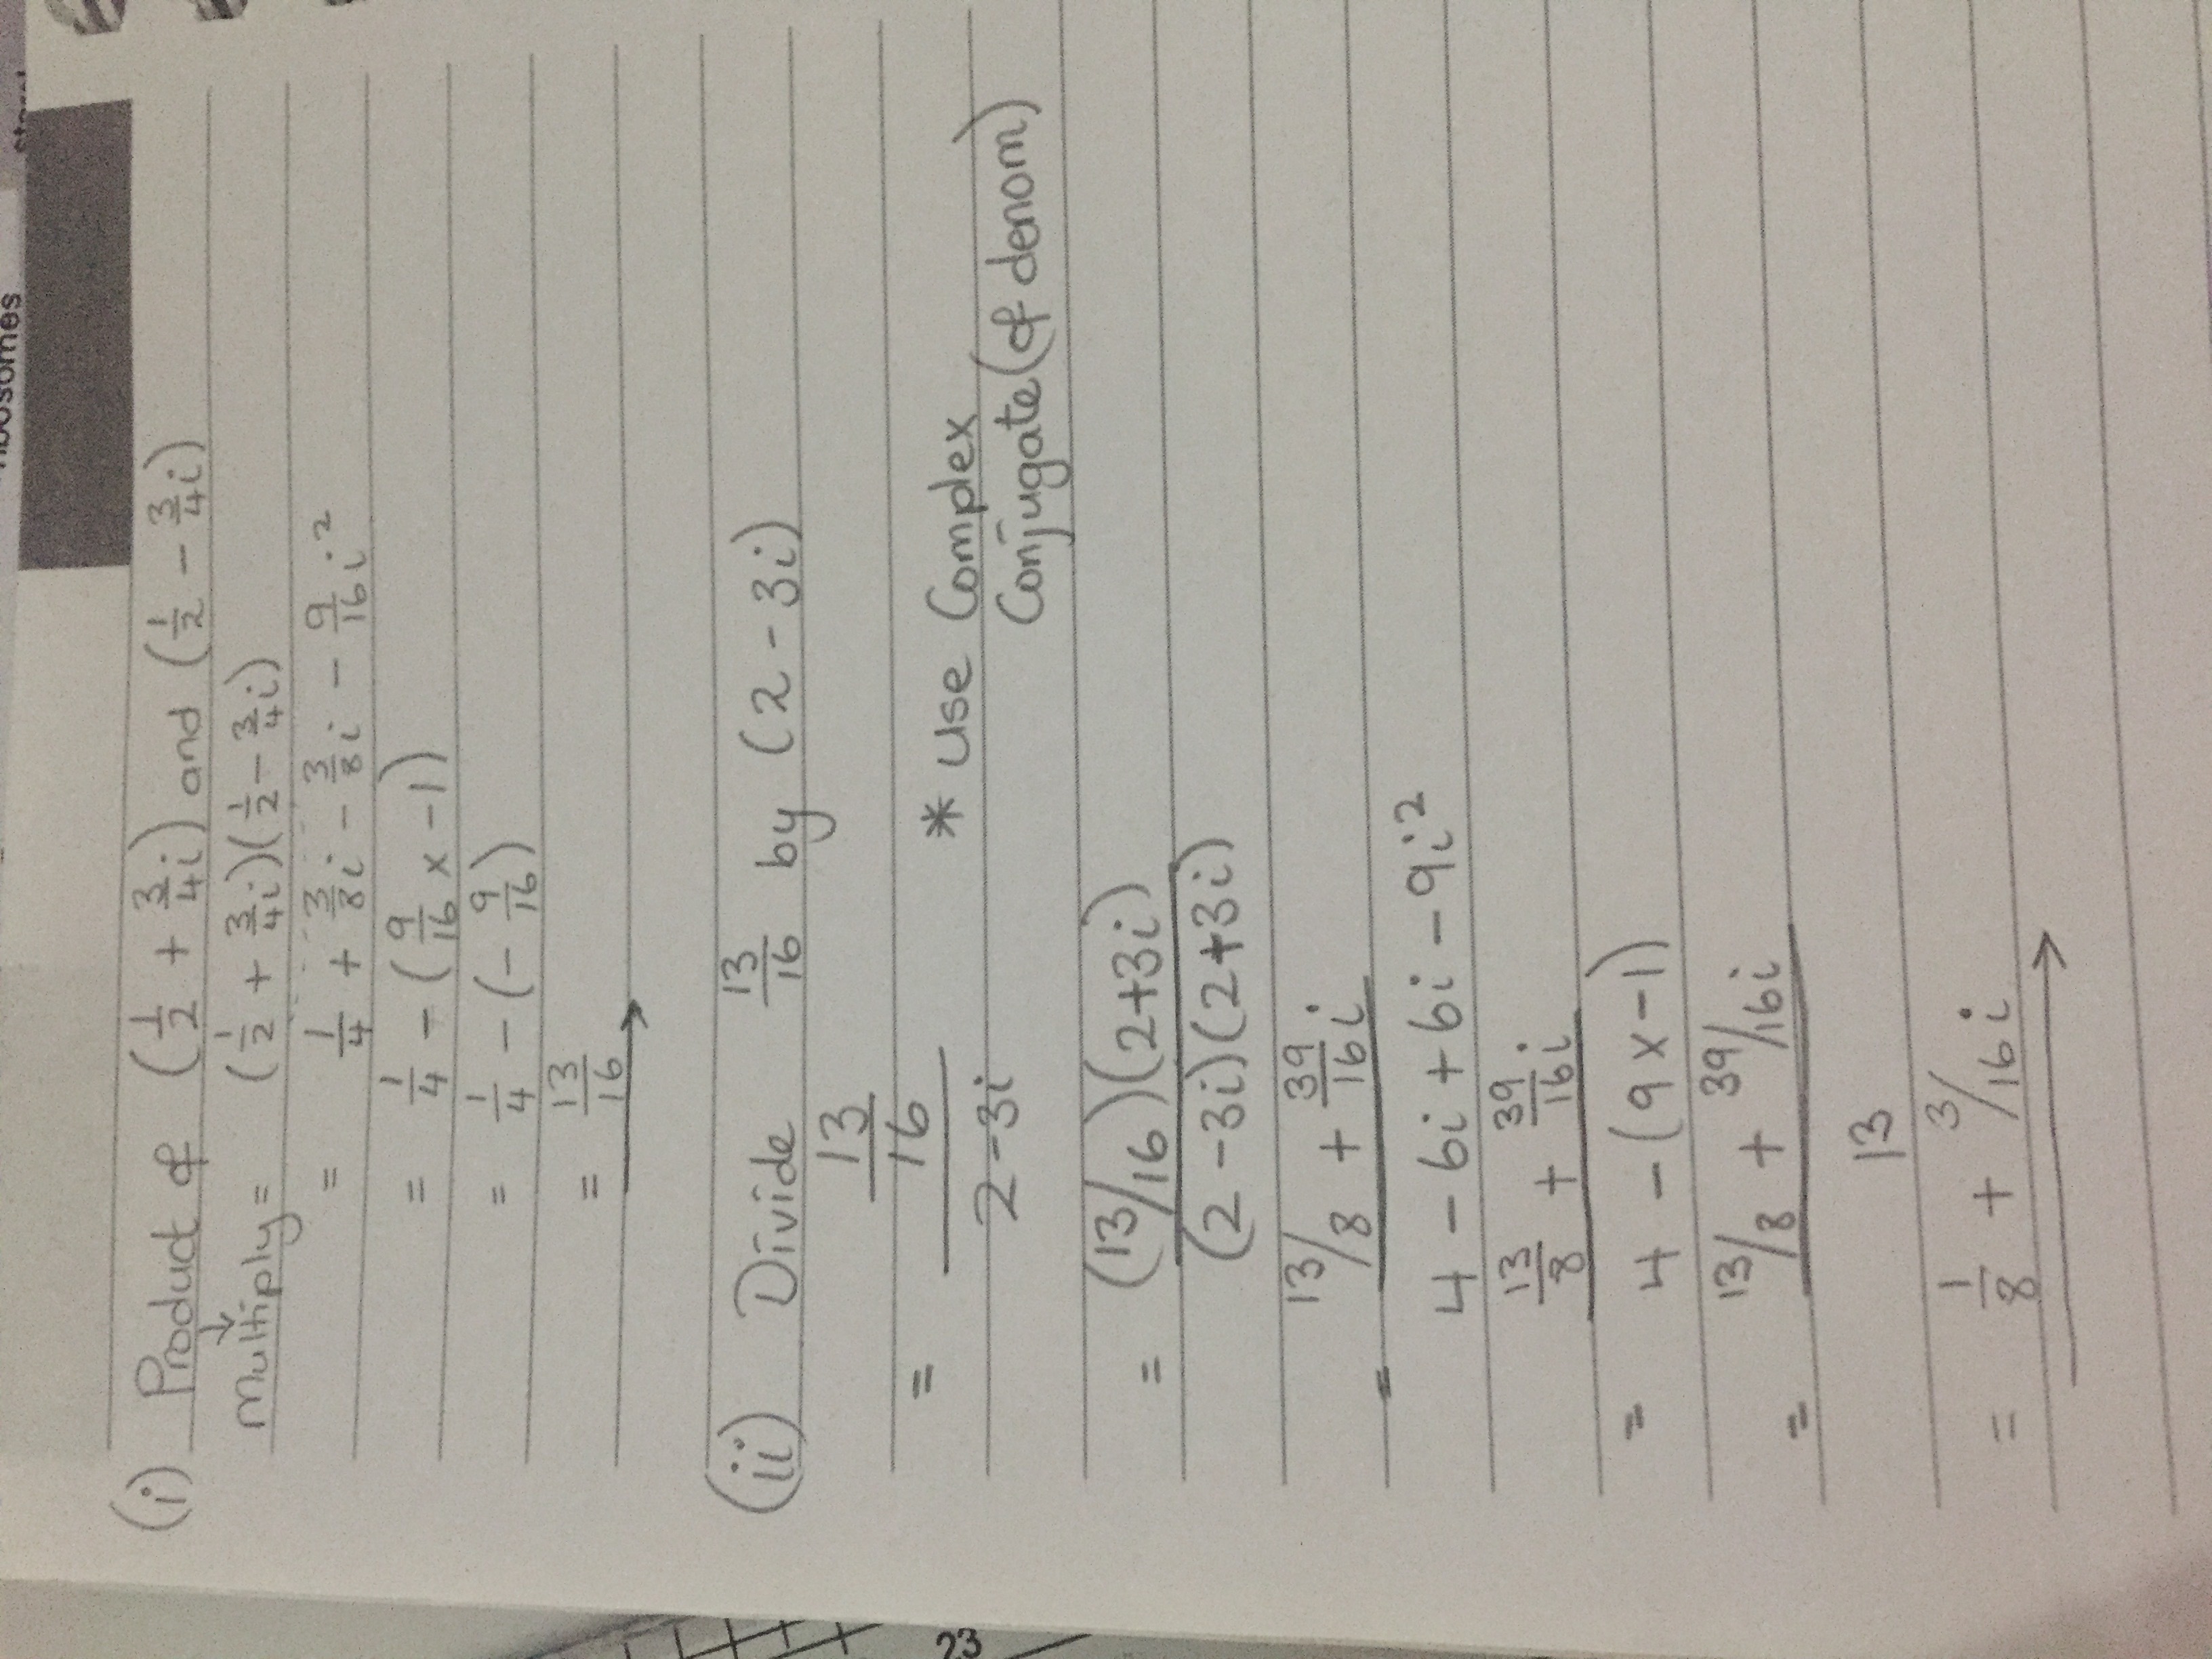 (i) Product of (1/2 + 3/4i) and (1/2 - 3/4i)
↓
multiply = (1/2 + 3/4i)(1/2 - 3/4i)
= 1/4 + 3/8i - 3/8i - 9/16i²
= 1/4 - (9/16 x -1)
= 1/4 - (- 9/16)
= 13/16
(ii) Divide 13/16 by (2 - 3i)
= 13/16
2 - 3i
* use Complex
Conjugate (of denom)
= (13/16)(2+3i)
(2 - 3i)(2+3i)
= 13/8 + 39/16i
4 - 6i + 6i - 9i²
= 13/8 + 39/16i
4 - (9 x -1)
= 13/8 + 39/16i
13
= 1/8 + 3/16i
ribosomes
23